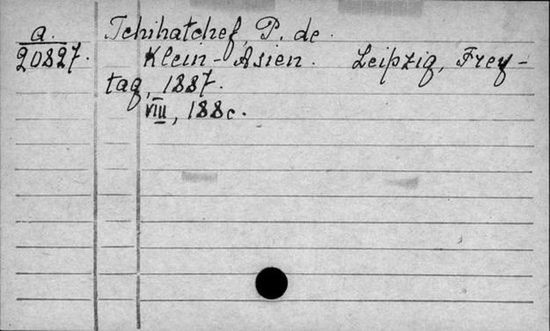 a. Tchihatchef, P. de.
20827. Klein-Asien. Leipzig, Frey-
tag, 1887.
VIII, 188 c.